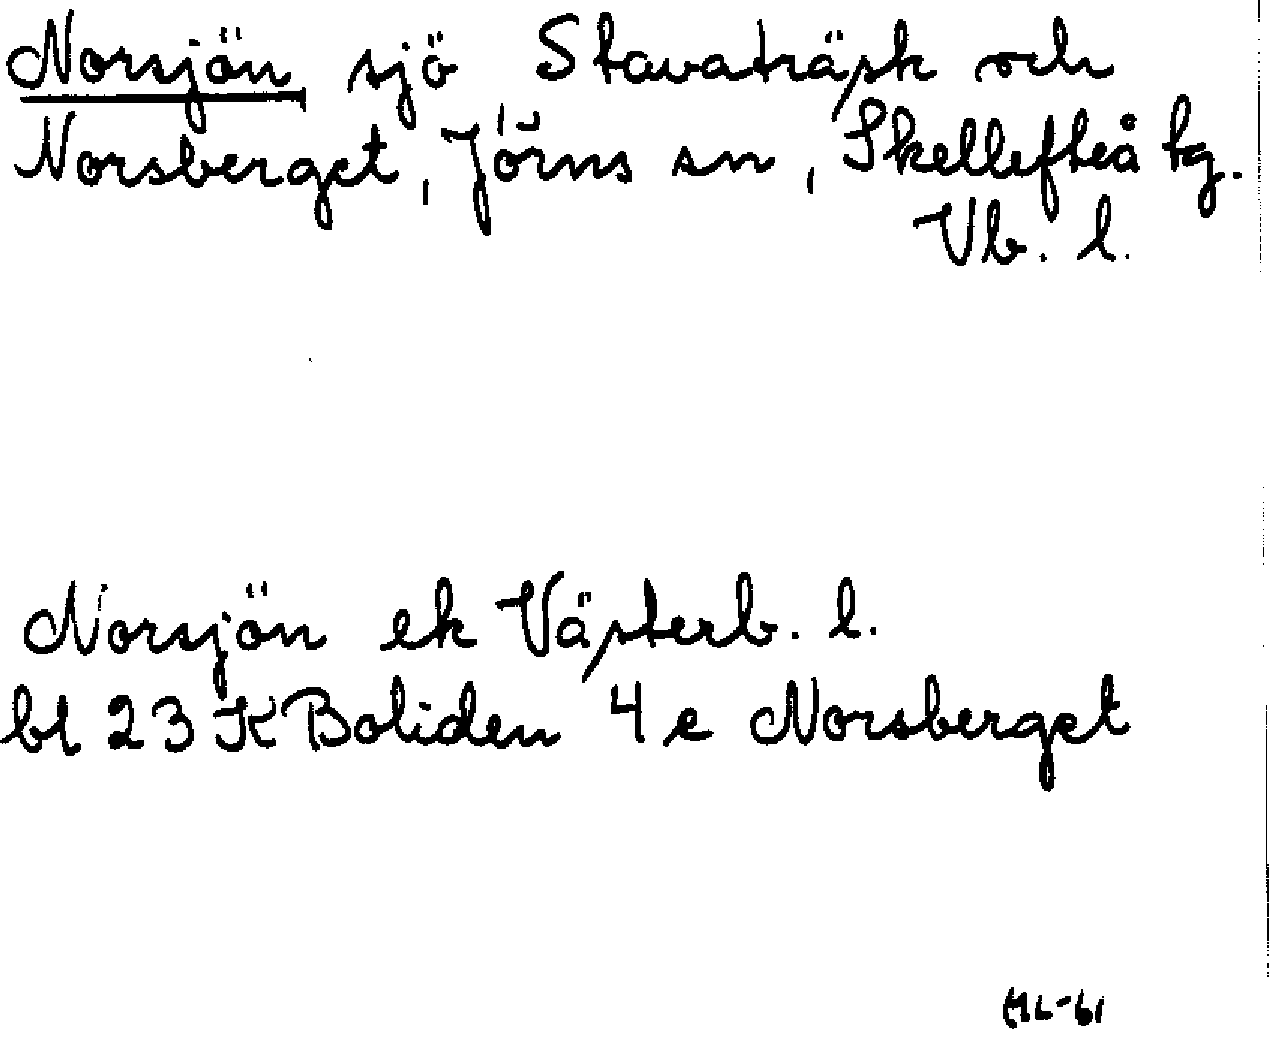 Norsjön sjö Stavaträsk och
Norsberget, Jörns sn, Skellefteå tg.
Vb. l.
Norsjön ek Västerb. l.
bl 23 K Boliden 4e Norsberget